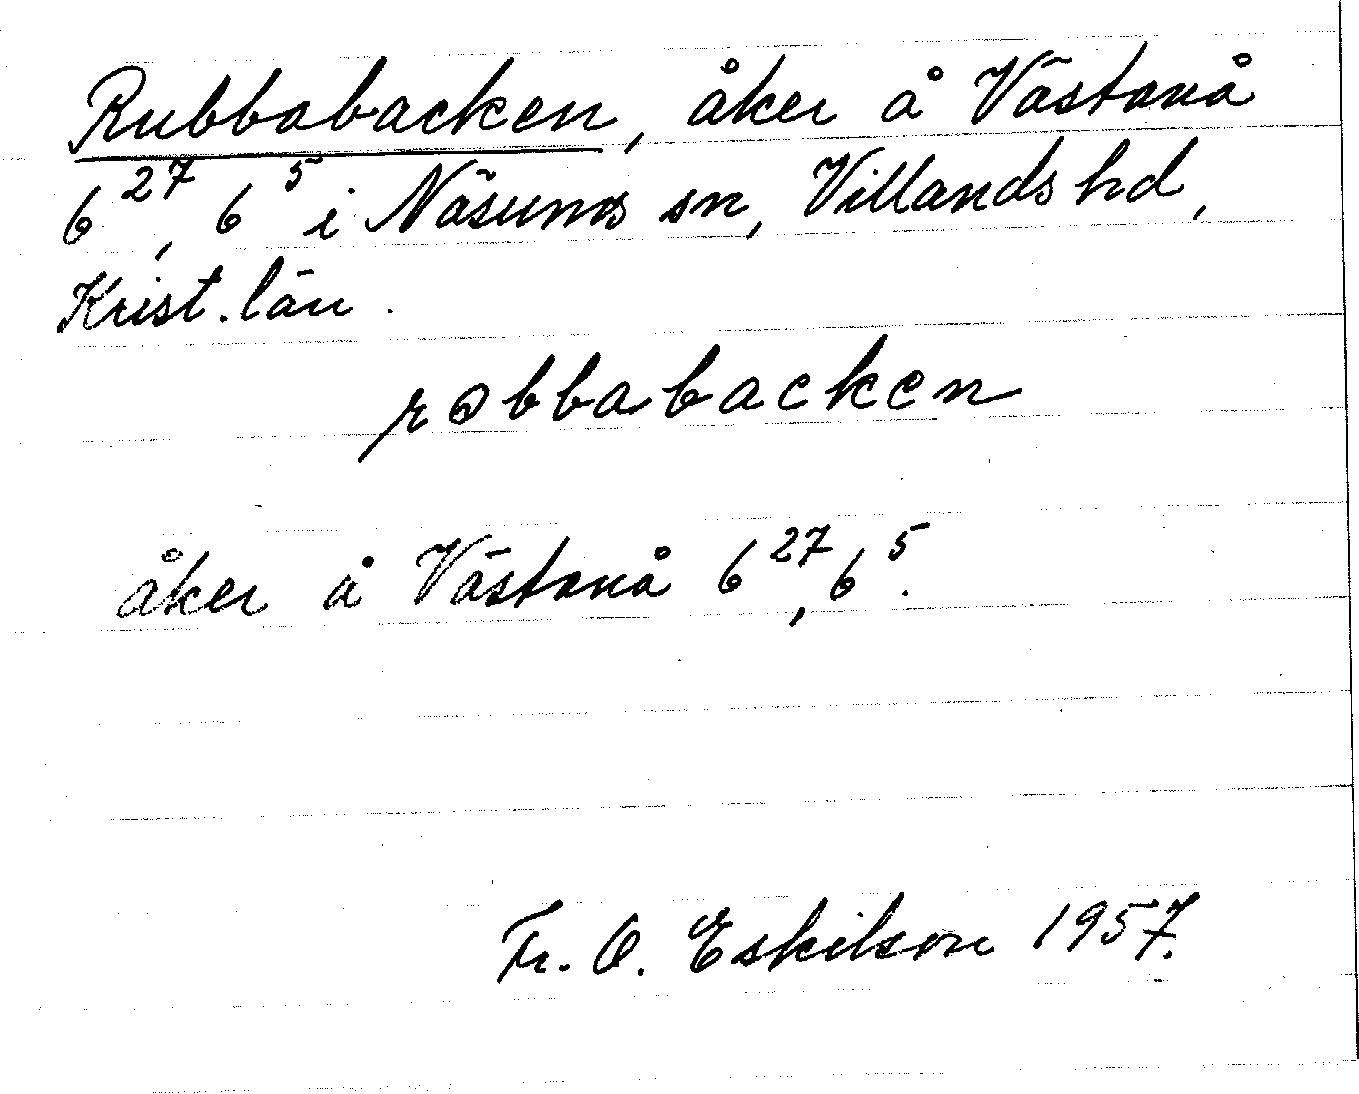 Rubbabacken, åker å Västanå
6²⁷, 6⁵ i Näsums sn, Villands hd,
Krist. län.
rɵbbabacken
åker å Västanå 6²⁷, 6⁵.
Fr. O. Eskilson 1957.